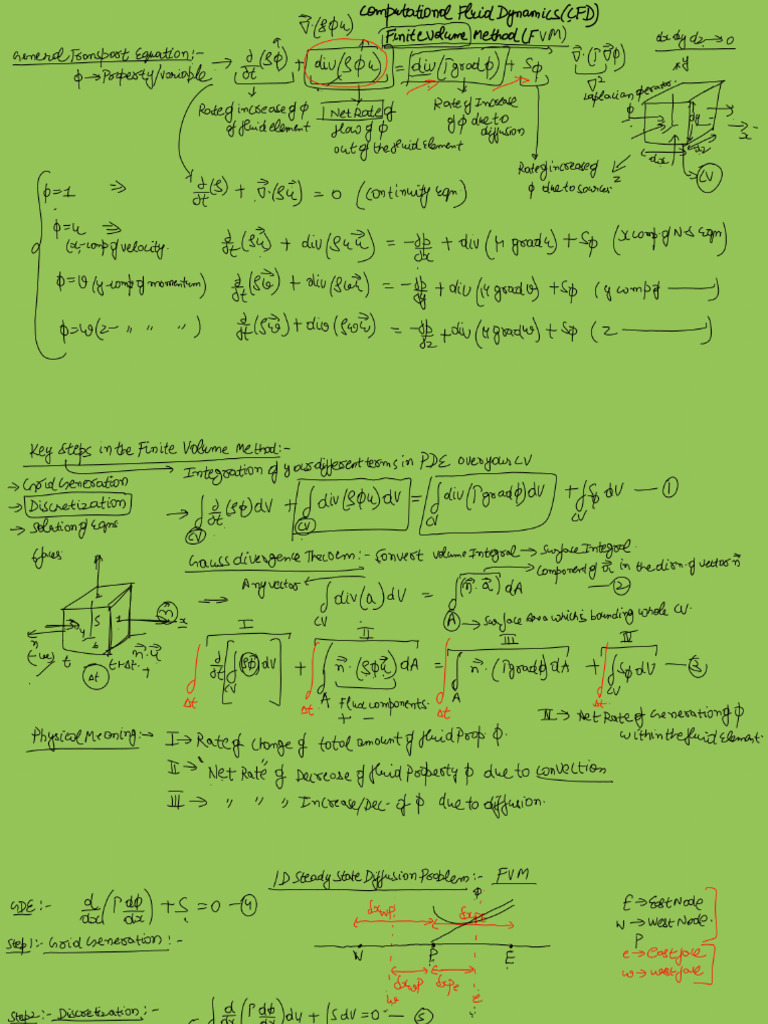 Computational Fluid Dynamics (CFD)
Finite Volume Method (FVM)
∇·(ρϕu)
General Transport Equation:-
ϕ → Property/variable → ∂/∂t(ρϕ) + div(ρϕu) = div(Γ gradϕ) + Sϕ
∇·(Γ∇ϕ)
∇²
Laplacian operator
dx dy dz → 0
Rate of increase of ϕ of fluid element
Net Rate of flow of ϕ out of the fluid Element
Rate of Increase of ϕ due to diffusion
Rate of increase of ϕ due to sources
dx
dz
CV
ϕ=1 ⇒ ∂/∂t(ρ) + ∇·(ρu) = 0 (Continuity Eqn)
ϕ=u ⇒
(x-comp of velocity) ∂/∂t(ρu) + div(ρuu) = -∂p/∂x + div(μ gradu) + Sϕ (x comp of N-S Eqn)
ϕ=v (y-comp of momentum) ∂/∂t(ρv) + div(ρvu) = -∂p/∂y + div(μ gradv) + Sϕ (y comp of ——)
ϕ=w (z- " " ") ∂/∂t(ρw) + div(ρwu) = -∂p/∂z + div(μ gradw) + Sϕ (z ——)
Key Steps in the Finite Volume Method:-
Integration of your different terms in PDE over your CV
→ Grid Generation
→ Discretization
→ Solution of Eqns
→ ∫CV ∂/∂t(ρϕ)dV + ∫CV div(ρϕu)dV = ∫CV div(Γ gradϕ)dV + ∫CV Sϕ dV — ①
Gauss divergence Theorem:- Convert Volume Integral → Surface Integral
Any vector
Component of a in the dirn. of vector n
→ ∫CV div(a)dV = ∫A (n·a)dA — ②
A → Surface Area which is bounding whole CV.
n
(-ve)
t
t+Δt
Δt
n·u
+
I II III IV
∫Δt ∂/∂t[∫CV (ρϕ)dV] + ∫Δt ∫A n·(ρϕu)dA = ∫Δt ∫A n·(Γ gradϕ)dA + ∫Δt ∫CV Sϕ dV — ③
Flux components
+ -
IV → Net Rate of Generation of ϕ within the fluid Element.
Physical Meaning:- → I → Rate of Change of total amount of fluid Prop ϕ.
II → "Net Rate" of Decrease of fluid Property ϕ due to convection
III → " " " Increase/Dec- of ϕ due to diffusion.
1D Steady State Diffusion Problem:- FVM
GDE:- d/dx(Γ dϕ/dx) + S = 0 — ④
Step1:- Grid Generation:-
ϕ
δxWP
δxPE
W P E
δxwP δxPe
w e
E → East Node
W → West Node.
P
e → East face
w → west face
Step2:- Discretization:-
∫ d/dx(Γ dϕ/dx)dV + ∫S dV = 0 — ⑤